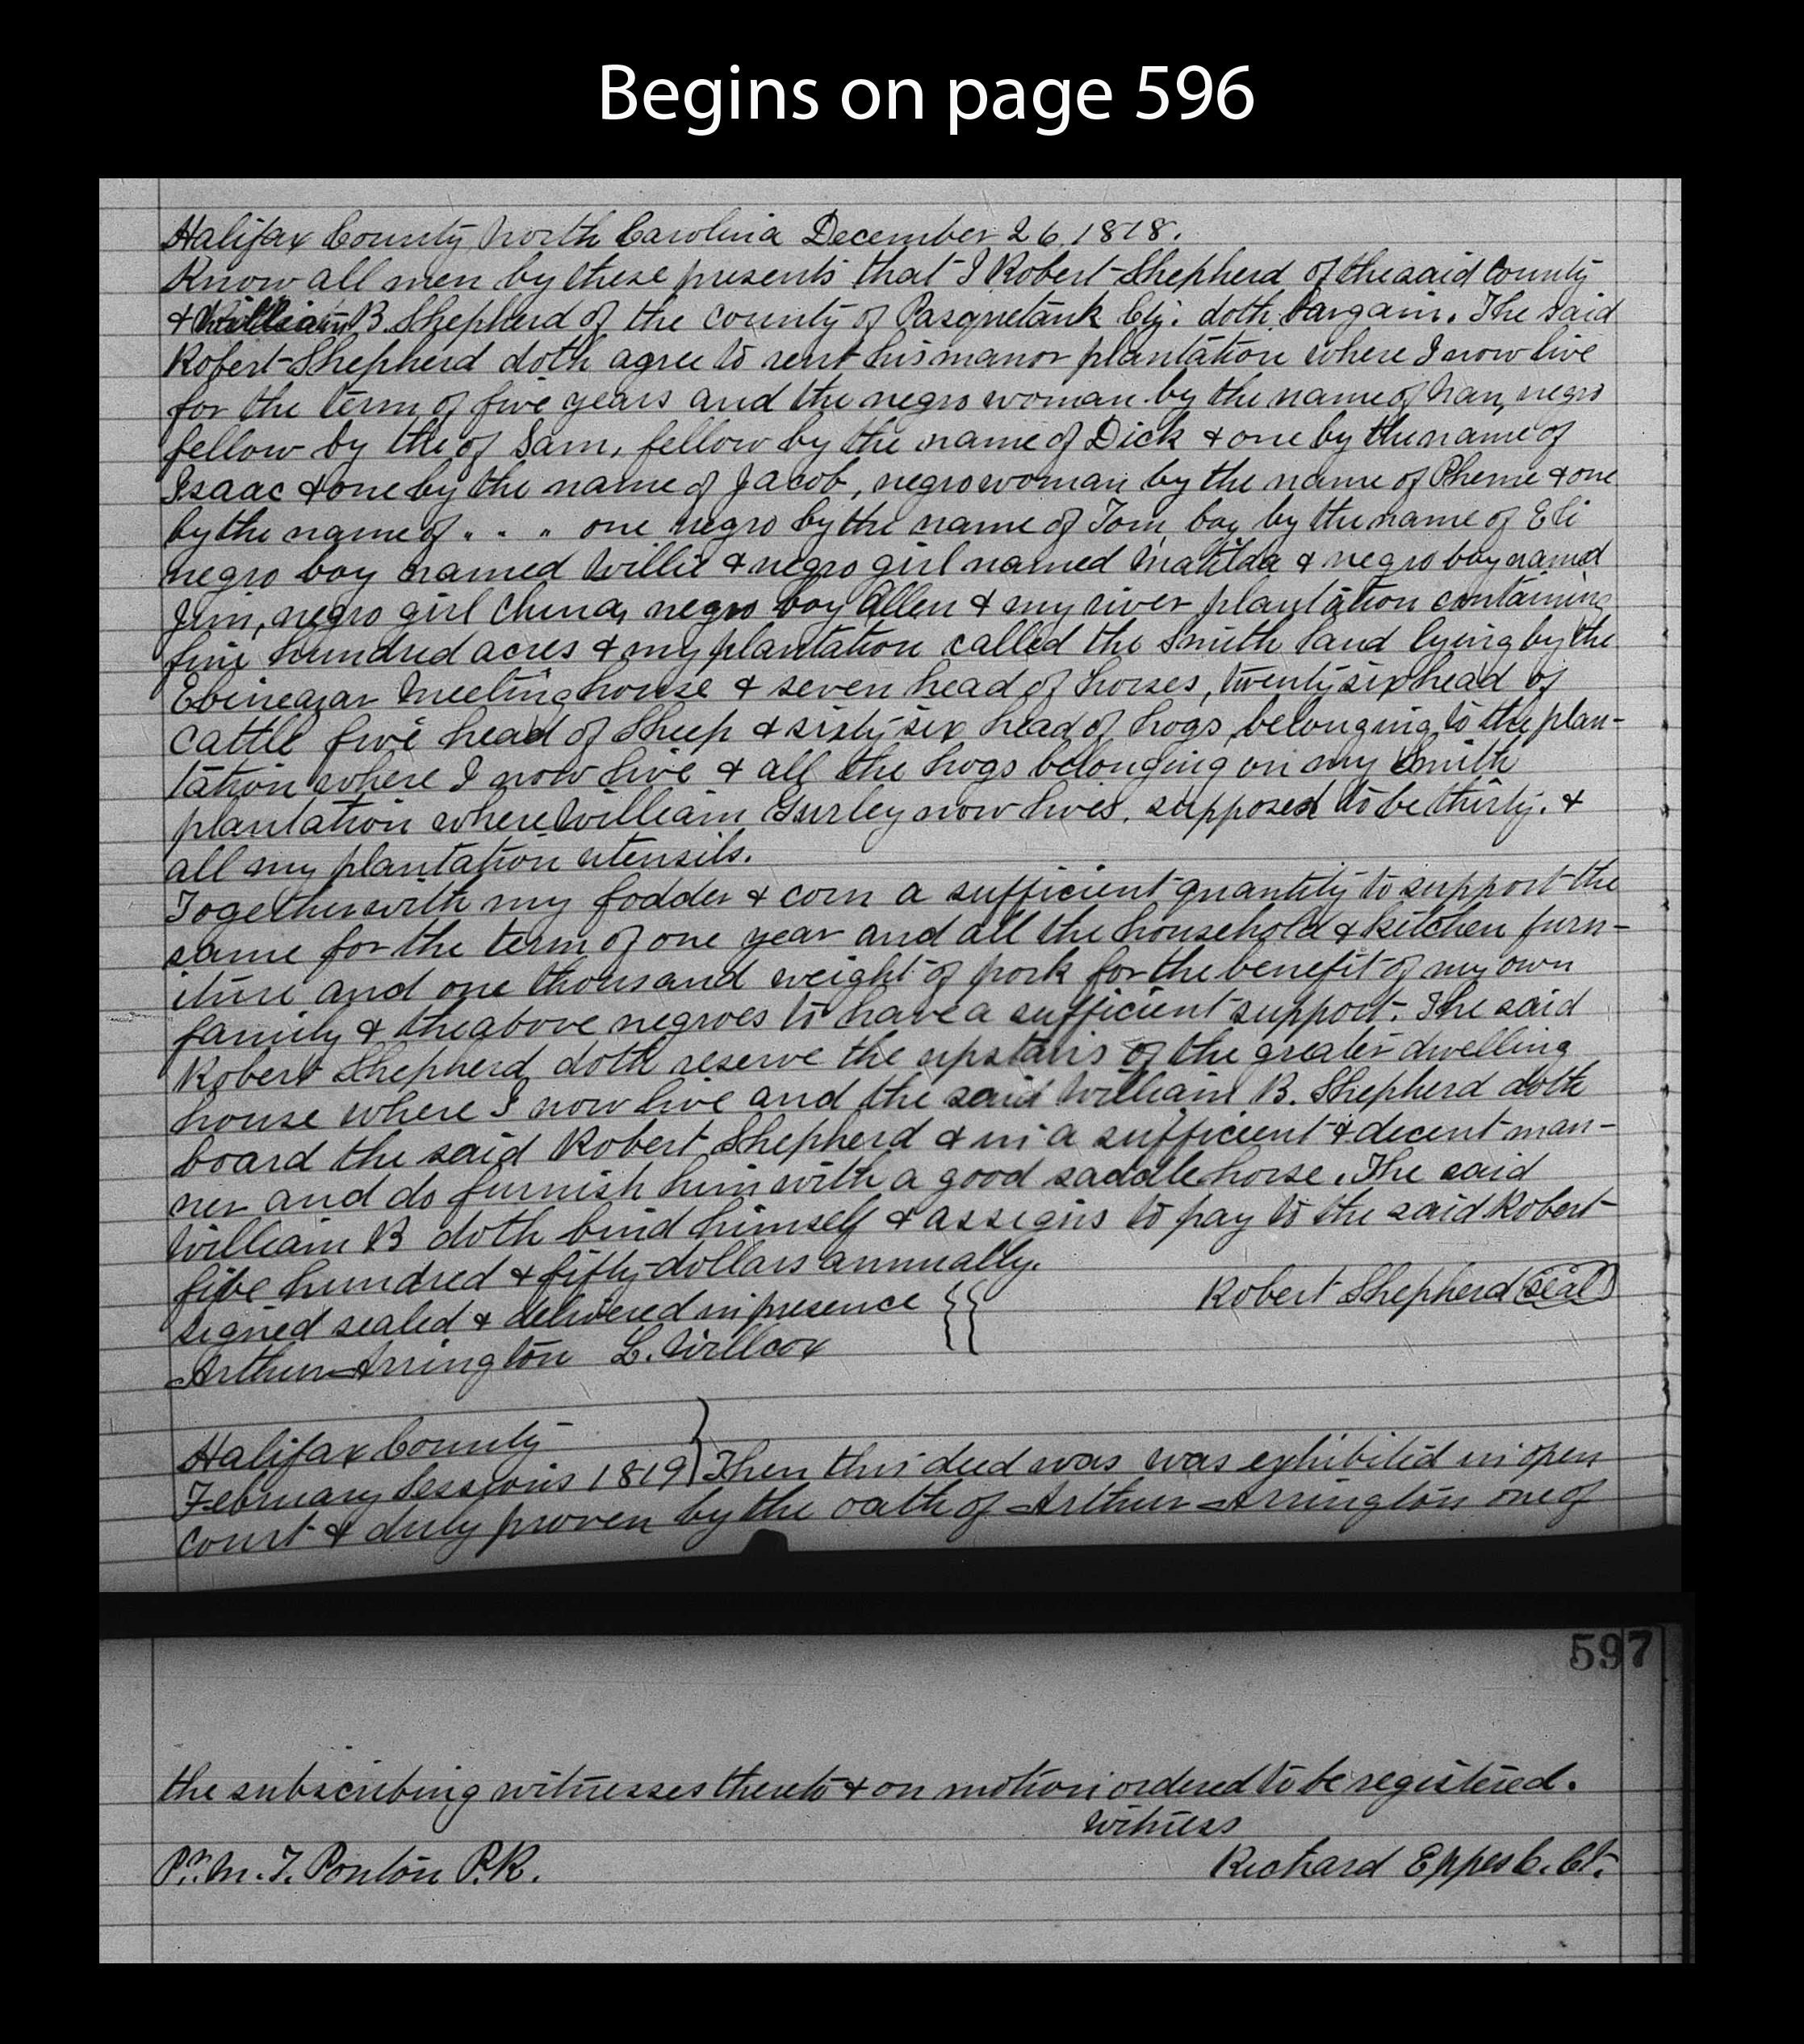 Begins on page 596
Halifax County North Carolina December 26, 1818.
Know all men by these presents that I Robert Shepherd of the said County
& William B. Shepherd of the county of Pasquetank Cty. doth bargain. The said
Robert Shepherd doth agree to rent his manor plantation where I now live
for the term of five years and the negro woman by the name of Nan, negro
fellow by the of Sam, fellow by the name of Dick & one by the name of
Isaac & one by the name of Jacob, negro woman by the name of Pheme & one
by the name of . . . one negro by the name of Tom, boy by the name of Eli
negro boy named Willie & negro girl named Matilda & negro boy named
Jim, negro girl China, negro boy Allen & my river plantation containing
five hundred acres & my plantation called the Smith land lying by the
Ebineazar Meeting house & seven head of horses, twenty six head of
cattle five head of Sheep & sixty six head of hogs, belonging to the plan-
tation where I now live & all the hogs belonging on my Smith
plantation where William Gurley now lives, supposed to be thirty. &
all my plantation utensils.
Together with my fodder & corn a sufficient quantity to support the
same for the term of one year and all the household & kitchen furn-
iture and one thousand weight of pork for the benefit of my own
family & the above negroes to have a sufficient support. The said
Robert Shepherd doth reserve the upstairs of the greater dwelling
house where I now live and the said William B. Shepherd doth
board the said Robert Shepherd & in a sufficient & decent man-
ner and do furnish him with a good saddle horse. The said
William B doth bind himself & assigns to pay to the said Robert
five hundred & fifty dollars annually.
Signed sealed & delivered in presence Robert Shepherd (seal)
Arthur Arrington L. Willcox
Halifax County
February Sessions 1819} Then this deed was was exhibited in open
court & duly proven by the oath of Arthur Arrington one of
597
the subscribing witnesses thereto & on motion ordered to be registered.
Witness
Pr. M. F. Ponton P.R. Richard Eppes C. Ct.